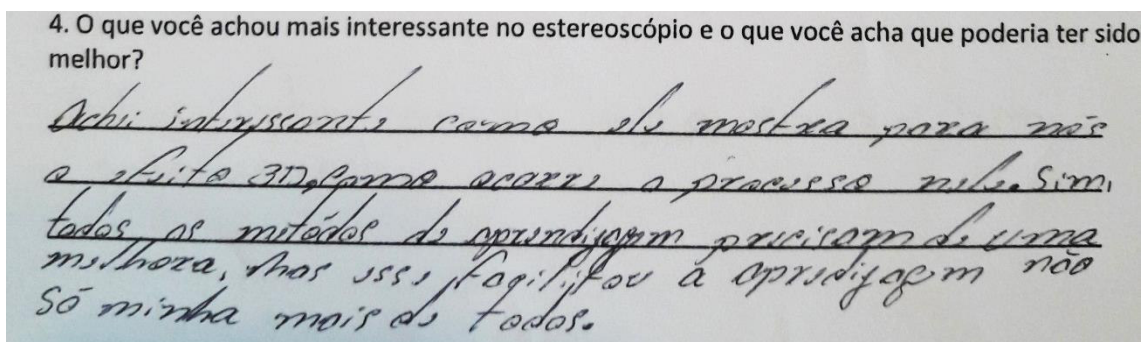 4. O que você achou mais interessante no estereoscópio e o que você acha que poderia ter sido
melhor?
Achei interessante como ele mostra para nós
o efeito 3D, como ocorre o processo nele. Sim,
todos os metódos de aprendizagem precisam de uma
melhora, mas esse facilitou a apredizagem não
só minha mais de todos.